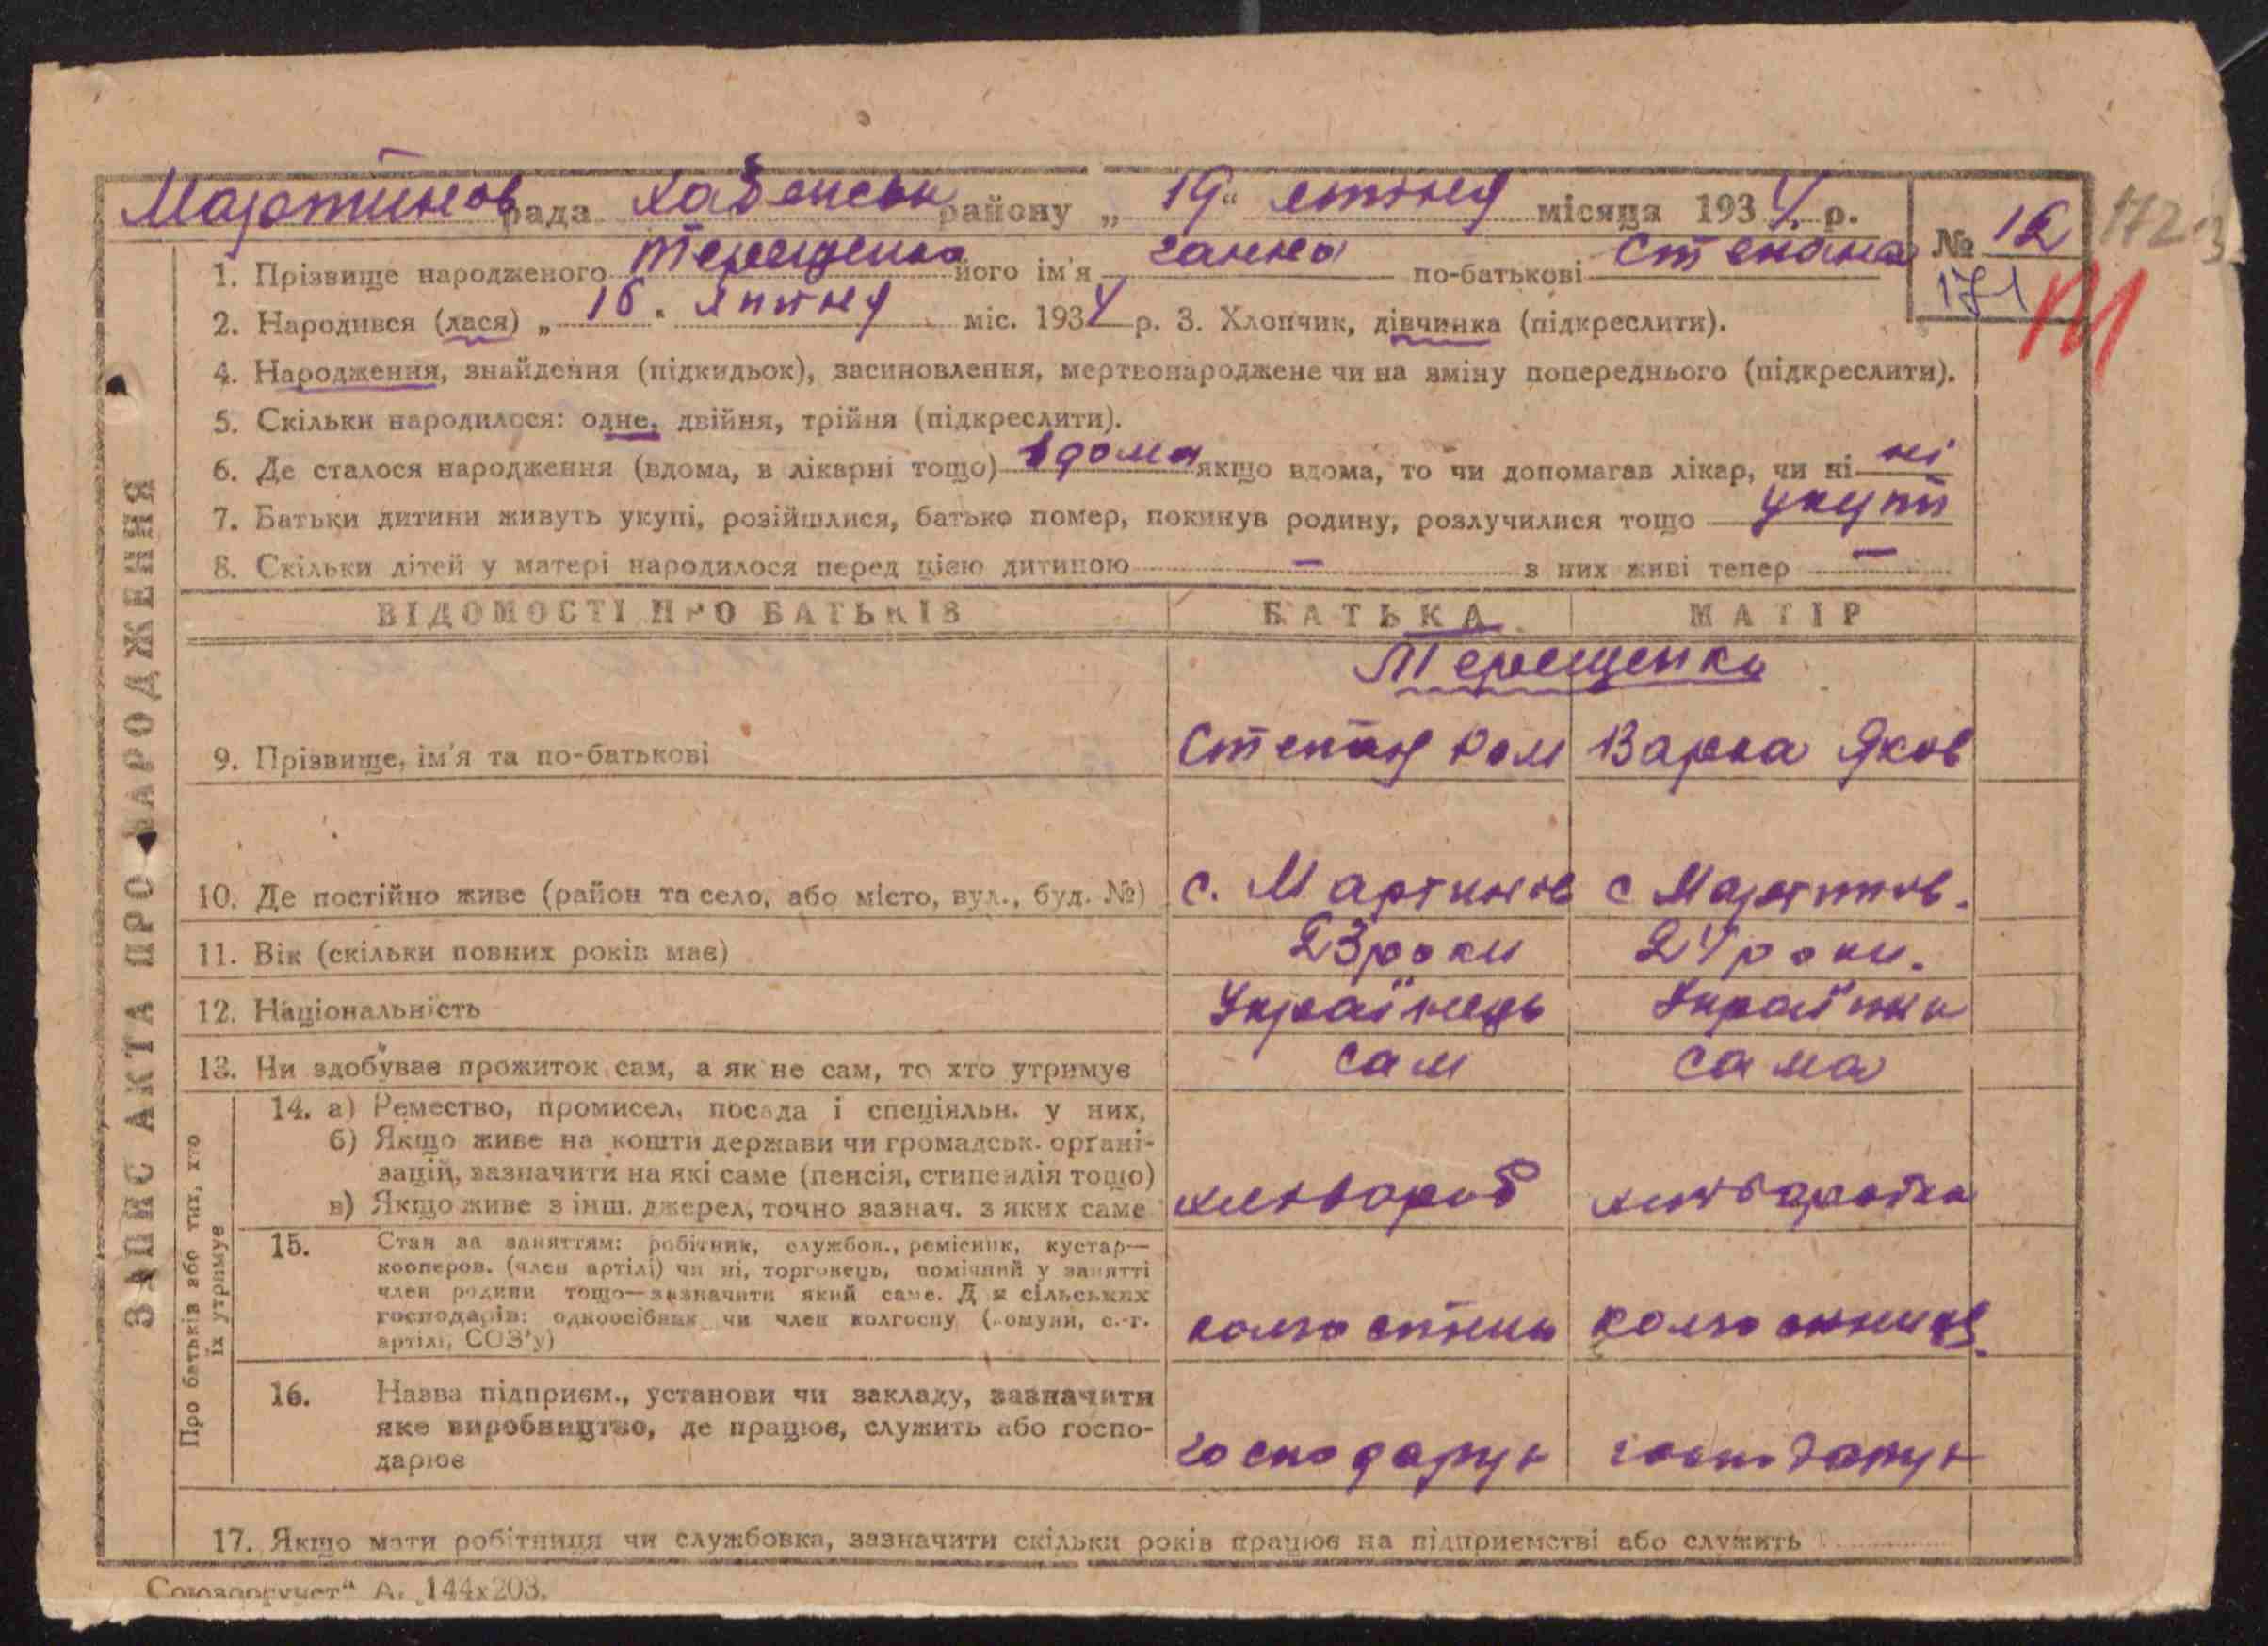 Мартинов рада Хабенськ району „ 19 “ липня місяця 1934 р. № 12 172
1. Прізвище народженого Терещенко його ім'я Ганна по-батькові Степана
171
2. Народився (лася) „ 15 “ липня міс. 1934 р. 3. Хлопчик, дівчинка (підкреслити).
4. Народження, знайдення (підкидьок), засиновлення, мертвонароджене чи на зміну попереднього (підкреслити).
5. Скільки народилося: одне, двійня, трійня (підкреслити).
6. Де сталося народження (вдома, в лікарні тощо) вдома якщо вдома, то чи допомагав лікар, чи ні ні
7. Батьки дитини живуть укупі, розійшлися, батько помер, покинув родину, розлучилися тощо укупі
8. Скільки дітей у матері народилося перед цією дитиною — з них живі тепер —
ВІДОМОСТІ ПРО БАТЬКІВ БАТЬКА МАТІР
Терещенко
9. Прізвище, ім'я та по-батькові Степан Ром Варка Яков
10. Де постійно живе (район та село, або місто, вул., буд. №) с. Мартинов с Мартинов.
11. Вік (скільки повних років має) 23 роки 24 роки.
12. Національність Українець Українка
13. Чи здобуває прожиток сам, а як не сам, то хто утримує сам сама
14. а) Ремество, промисел, посада і спеціяльн. у них,
б) Якщо живе на кошти держави чи громадськ. органі-
зацій, зазначити на які саме (пенсія, стипендія тощо)
в) Якщо живе з інш. джерел, точно зазнач. з яких саме хлібороб
15. Стан за заняттям: робітник, службов., ремісник, кустар—
кооперов. (член артілі) чи ні, торговець, помічний у занятті
член родини тощо—зазначити який саме. Для сільських
господарів: одноосібник чи член колгоспу (комуни, с.-г.
артілі, СОЗ'у) колгоспник
16. Назва підприєм., установи чи закладу, зазначити
яке виробництво, де працює, служить або госпо-
дарює господарує господарує
17. Якщо мати робітниця чи службовка, зазначити скільки років працює на підприємстві або служить
ЗАПИС АКТА ПРО НАРОДЖЕННЯ
Про батьків або тих, хто
їх утримує
Союзоргучет“ А. 144х203.